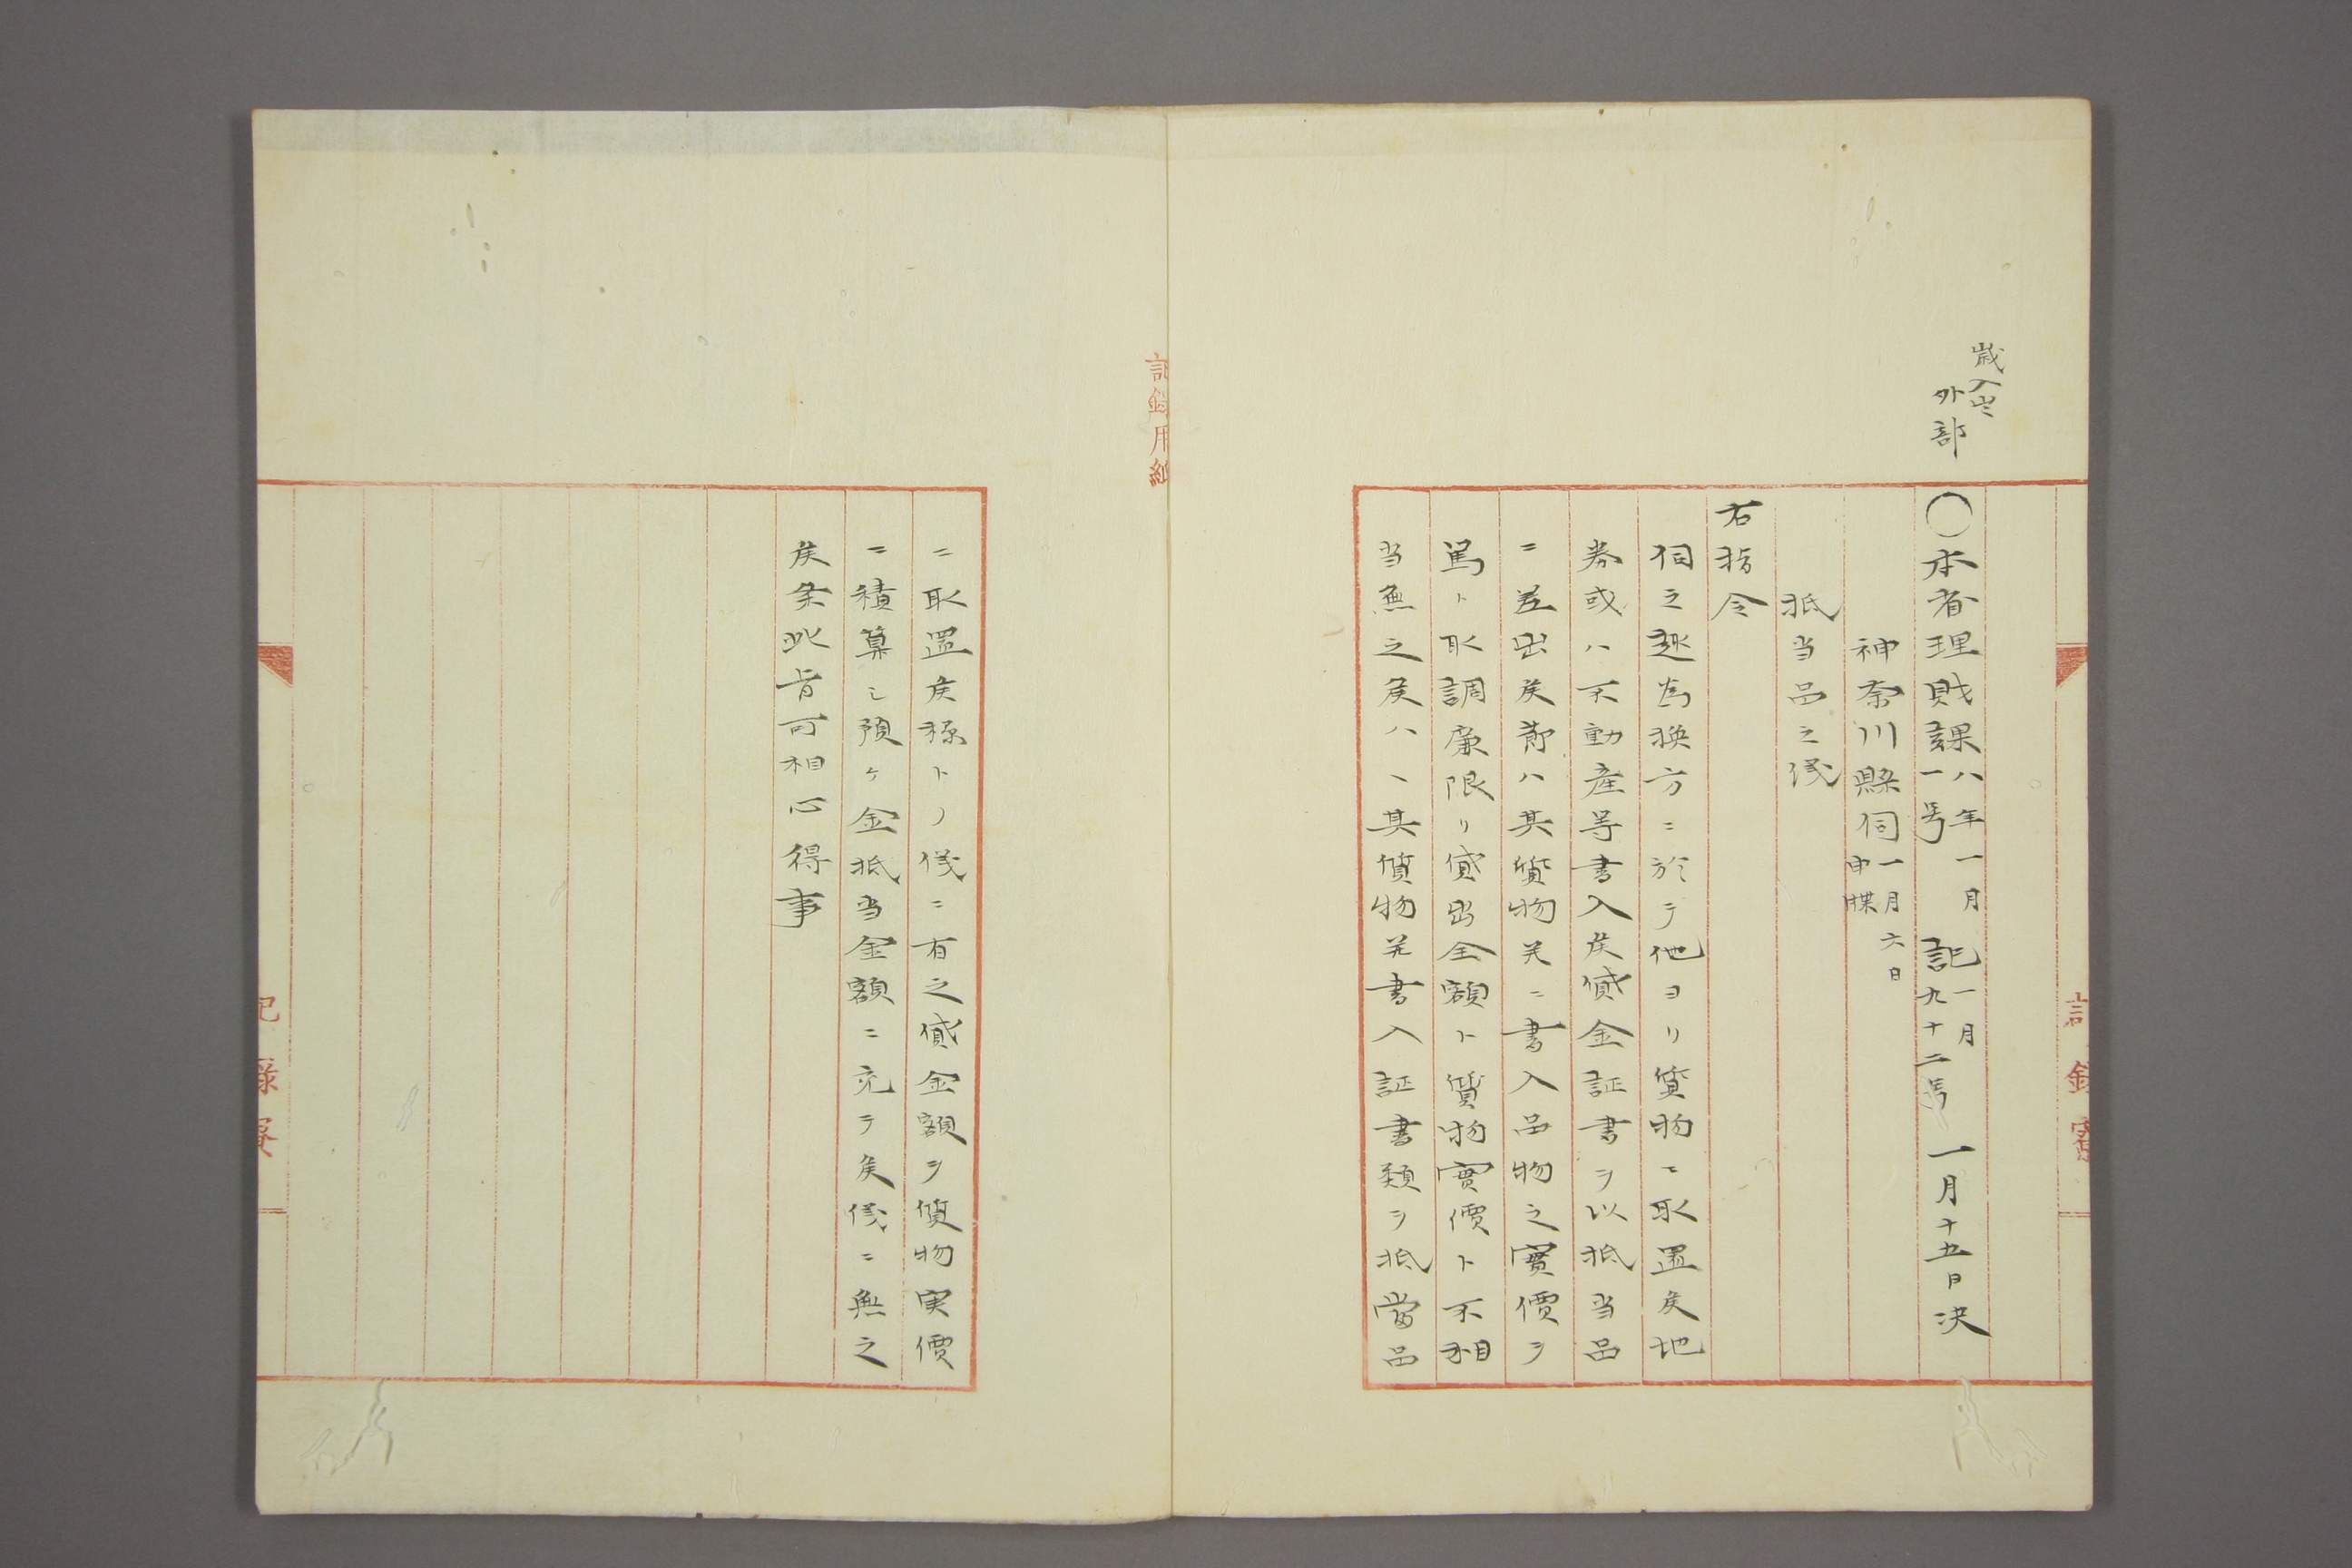 歳入出
外部
〇本省理財課八年一月一号 記一月九十二号 一月十五日决
神奈川縣伺一月六日申牒
抵当品之儀
右指令
伺之趣為換方ニ於テ他ヨリ質物ニ取置候地
券或ハ不動産等書入候貸金証書ヲ以抵当品
ニ差出候節ハ其質物并ニ書入品物之實價ヲ
篤ト取調廉限リ貸出金額ト質物實價ト不相
当無之候ハヽ其質物并書入証書類ヲ抵當品
ニ取置候積トノ儀ニ有之貸金額ヲ質物実價
ニ積算シ預ケ金抵当金額ニ充テ候儀ニ無之
候条此旨可相心得事
記録用紙
記録寮
記録寮